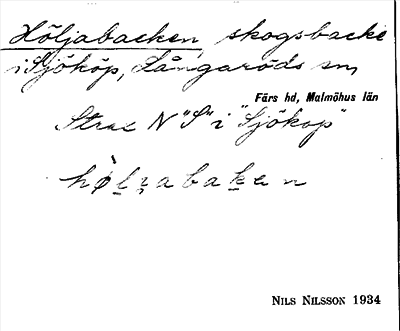 Höljabacken skogsbacke
i Sjököp, Långaröds sn,
Färs hd, Malmöhus län
Strax N "S" i "Sjököp"
hø̀lɟabaken
NILS NILSSON 1934